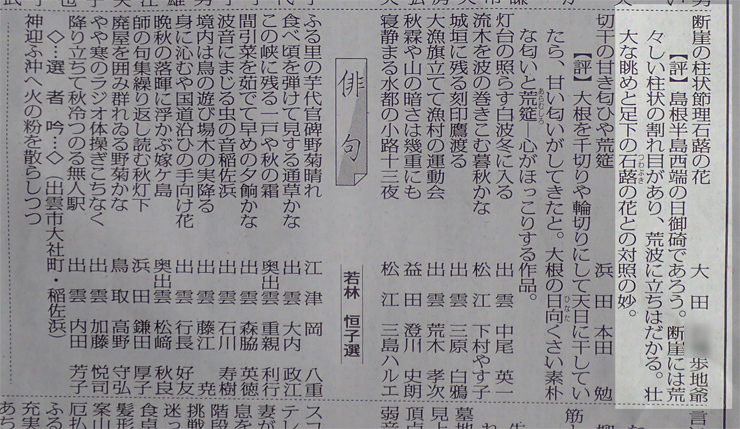 断崖の柱状節理石蕗の花 大田 歩地爺
【評】島根半島西端の日御碕であろう。断崖には荒
々しい柱状の割れ目があり、荒波に立ちはだかる。壮
大な眺めと足下の石蕗の花との対照の妙。
つわぶき
切干の甘き匂ひや荒筵 浜田 本田 勉
【評】大根を千切りや輪切りにして天日に干してい
たら、甘い匂いがしてきたと。大根の日向くさい素朴
ひなた
な匂いと荒筵―心がほっこりする作品。
あらむしろ
灯台の照らす白波冬に入る 出雲 中尾 英一
流木を波の巻きこむ暮秋かな 松江 下村やす子
城垣に残る刻印鷹渡る 出雲 三原 白鴉
大漁旗立てて漁村の運動会 出雲 荒木 孝次
秋霖や山の暗さは幾重にも 益田 澄川 史朗
寝静まる水都の小路十三夜 松江 三島ハルエ
俳句
若林 恒子選
ふる里の芋代官碑野菊晴れ 江津 岡 八重
食べ頃を弾けて見する通草かな 出雲 大内 政江
この峡に残る一戸や秋の霜 奥出雲 重親 利行
間引菜を茹でて早めの夕餉かな 出雲 森脇 英徳
波音にまじる虫の音稲佐浜 出雲 石川 寿樹
境内は鳥の遊び場木の実降る 出雲 藤江 尭
身に沁むや国道沿ひの手向け花 出雲 行長 好友
晩秋の落暉に浮かぶ嫁ケ島 奥出雲 松﨑 秋良
師の句集繰り返し読む秋灯下 浜田 鎌田 厚子
廃屋を囲み群れゐる野菊かな 鳥取 高野 守弘
やや寒のラジオ体操ぎこちなく 出雲 加藤 悦司
降り立ちて秋冷つのる無人駅 出雲 内田 芳子
◇…選者吟…◇(出雲市大社町・稲佐浜)
神迎ふ沖へ火の粉を散らしつつ